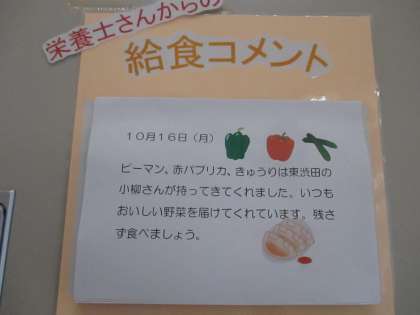 栄養士さんからの
給食コメント
10月16日（月）
ピーマン、赤パプリカ、きゅうりは東渋田の
小柳さんが持ってきてくれました。いつも
おいしい野菜を届けてくれています。残さ
ず食べましょう。